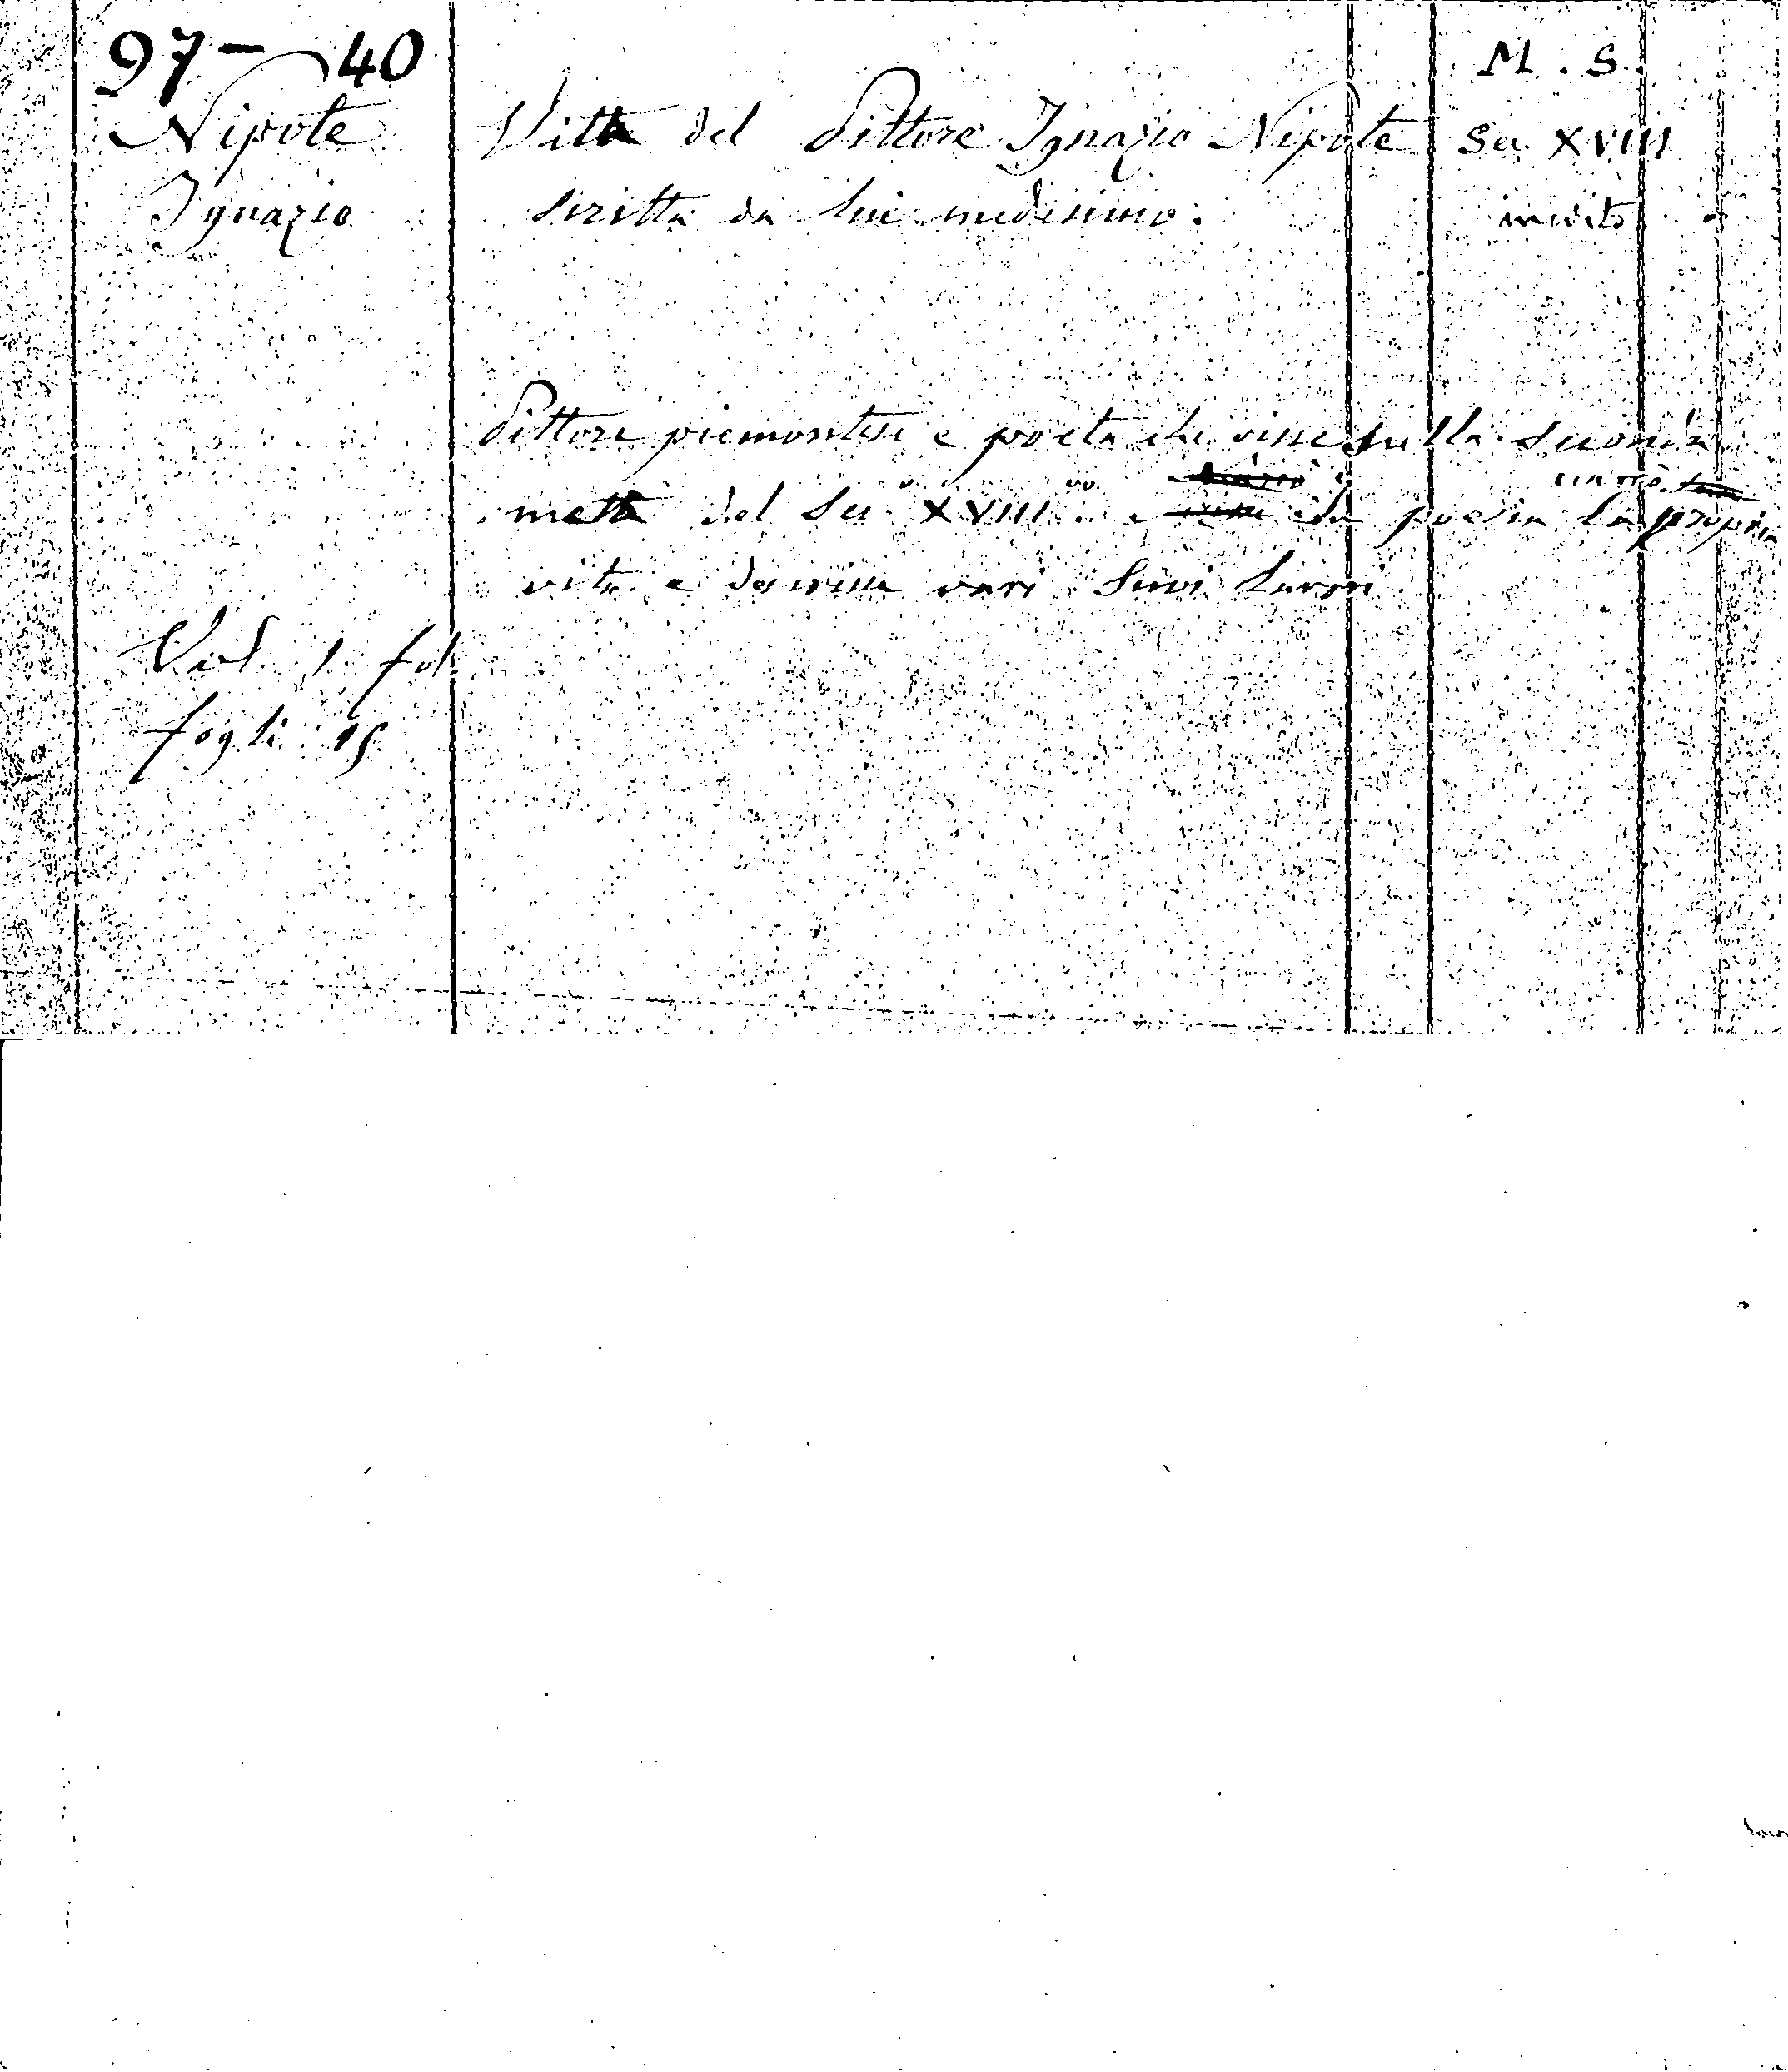 97-40
M. S.
Nipote
Ignazio
Vita del Pittore Ignazio Nipote
scritta da lui medesimo.
Sec XVIII
inedito
Pittore piemontese e poeta che visse sulla seconda
metà del Sec.º XVIIIº e in poesia narrò la propria
vita e descrisse vari suoi lavori
Vol. 1. fol.
fogli 15